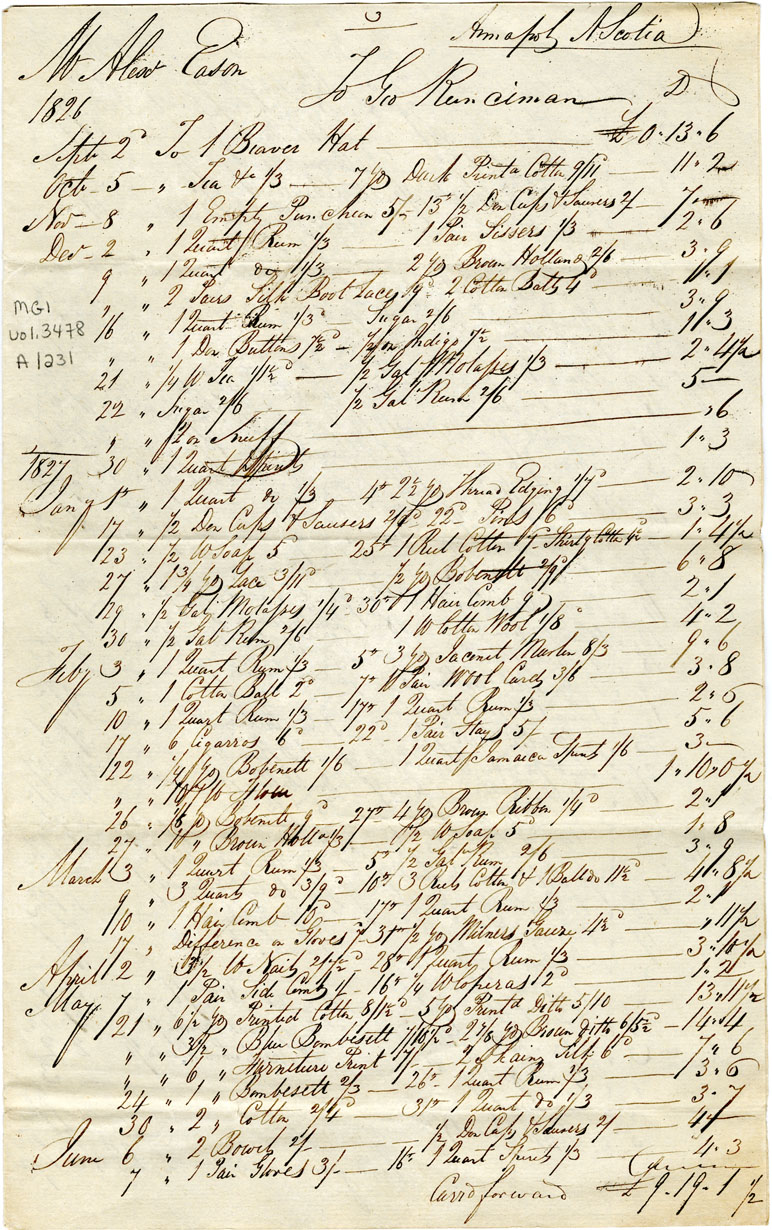 Annapol, N Scotia
Mr Alexr Eason
To Geo Runciman Dr
1826
Sept 2d To 1 Beaver Hat £ 0 " 13 " 6
Octr 5 " Tea &c 1/3 7 yd Dark Printd Cotton 9/11 11 " 2
Nov 8 " 1 Empty Puncheon 5/- 13th 1/2 Doz Cups & Sausers 2/ 7 "
Decr 2 " 1 Quart Rum 1/3 1 Pair Sissers 1/3 2 " 6
9 " 1 Quart do 1/3 2 yd Brown Holland 2/6 3 " 9
" " 2 Pairs Silk Boot Laces 9d 2 Cotton Balls 4d 1 " 1
16 " 1 Quart Rum 1/3 Sugar 2/6 3 " 9
" " 1 Doz Buttons 7 1/2d 1/2 oz Indigo 7 1/2 1 " 3
21 " 1/4 lb Tea 1/1 1/2d 1/2 Gal Molasses 1/3 2 " 4 1/2
22 " Sugar 2/6 1/2 Gal Rum 2/6 5 —
" " 2 oz Snuff " 6
30 " 1 Quart Spirits 1 " 3
1827
Jany 1st " 1 Quart do 1/3 4th 2 1/2 yd Thread Edging 1/7d 2 " 10
17 " 1/2 Doz Cups & Sausers 2/9d 22d Pins 6d 3 " 3
23 " 1/2 lb Soap 5d 25th 1 Reel Cotton Shirtg Cotton 1 " 4 1/2
27 " 1 3/4 yd Lace 3/11d 1/2 yd Bobenett 2/9d 6 " 8
29 " 1/2 Gal Molasses 1/4d 30th 1 Hair Comb 9d 2 " 1
30 " 1/2 Gal Rum 2/6 1 lb Cotton Wool 1/8d 4 " 2
Feby 3 " 1 Quart Rum 1/3 5th 3 yd Jaconet Muslin 8/3 9 " 6
5 " 1 Cotton Ball 2d 7th Pair Wool Cards 3/6 3 " 8
10 " 1 Quart Rum 1/3 17th 1 Quart Rum 1/3 2 " 6
17 " 6 Cigarros 6d 22d 1 Pair Stays 5/ 5 " 6
22 " 1/4 yd Bobenett 1/6 1 Quart Jamaica Spirits 1/6 3 —
" " lb Flour 1 " 10 " 0 1/2
26 " 1/6 yd Bobenett 9d 27th 4 yd Brown Ribbon 1/4d 2 " 1
27 " 1 " Brown Holland 1/3 1/2 lb Soap 5d 1 " 8
March 3 " 1 Quart Rum 1/3 5th 1/2 Gal Rum 2/6 3 " 9
9 " 3 Quarts do 3/9d 10th 3 Reels Cotton & 1 Ball do 11 1/2d 4 " 8 1/2
10 " 1 Hair Comb 10d 17th 1 Quart Rum 1/3 2 " 1
17 " Difference on Gloves 7d 31st 1/2 yd Milners Gauze 4 1/2d " 11 1/2
April 2 " 3 1/2 lb Nails 2/7 1/2d 28th 1 Quart Rum 1/3 3 " 10 1/2
May 7 " 1 Pair Side Combs 1/- 16th 1/4 lb Coperas 2d 1 " 2
21 " 6 1/2 yd Printed Cotton 8/1 1/2d 5 yd Printd Ditto 5/10 13 " 11 1/2
" " 3 1/2 " Blue Bombesett 7/10 1/2d 2 7/8 yd Brown ditto 6/5 1/2d 14 " 4
" " 6 " Furniture Print 7/ 2 Skains Silk 6d 7 " 6
24 " 1 " Bombesett 2/3 26th 1 Quart Rum 1/3 3 " 6
30 " 2 " Cotton 2/4d 31st 1 Quart do 1/3 3 " 7
June 6 " 2 Bowls 2/ 1/2 Doz Cups & Sausers 2/ 4 "
7 " 1 Pair Gloves 3/- 16th 1 Quart Spirits 1/3 4 " 3
Carrd forward £ 9 " 19 " 1 1/2
MG1
vol. 3478
A 1231